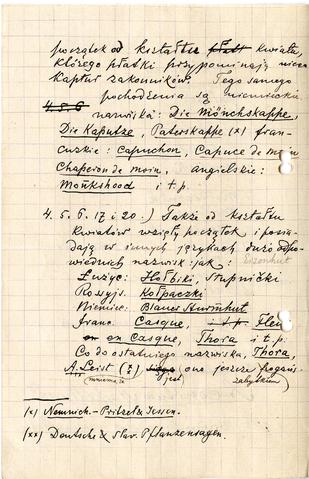 początek od kształtu kwiatu,
którego płatki przypominają nieco
kaptur zakonników. Tego samego
4. 5. 6 pochodzenia są niemieckie
nazwiska: Die Mönchskappe,
Die Kaputze, Paterskappe (x) fran-
cuzkie: Capuchon, Capuce de moin
Chaperon de moin, angielskie:
Monkshood i t p.
4. 5. 6. 17 i 20.) Także od kształtu
kwiatów wzięły początek i posia-
dają w innych językach dużo odpo-
wiednich nazwisk jak: Eisenhut
Łużyc: Hołbiki, Stupnički
Rossyjs. Kołpaczki
Niemiec: Blauer Sturmhut
franc. Casque, Fleur
en casque, Thora i t p.
Co do ostatniego nazwiska, Thora,
A. Leist (?), ono jeszcze
mniema że jest zabytkiem
(x) Nemnich - Pritzel & Jessen.
(xx) Deutsche & Slav. Pflanzensagen.